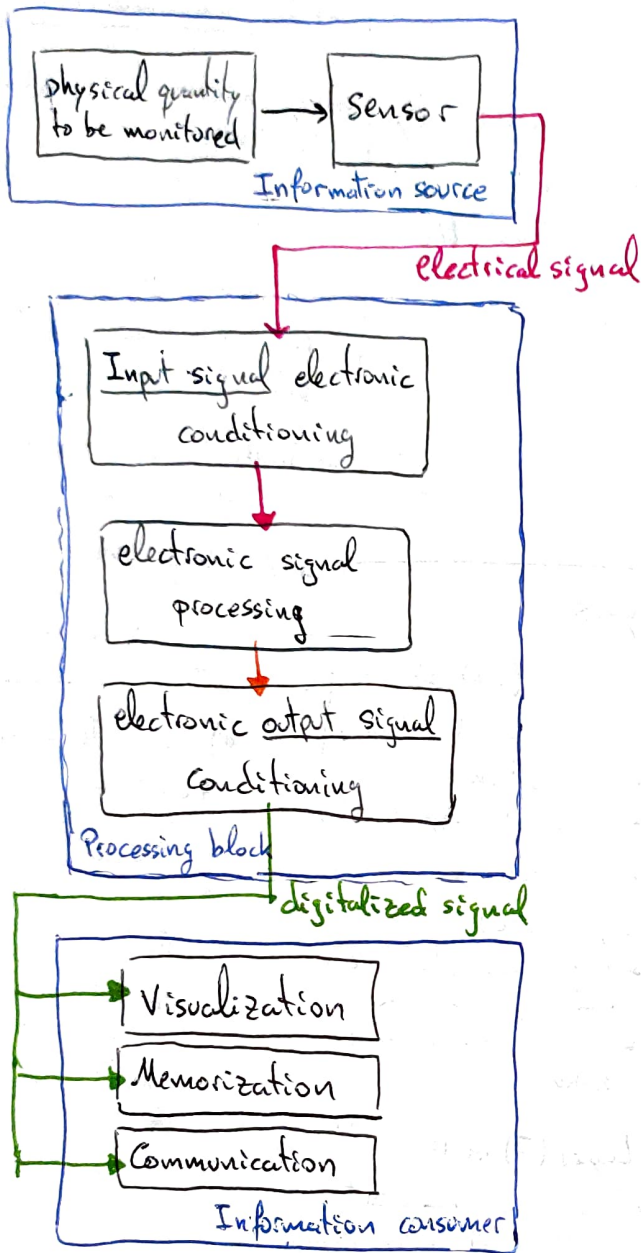 physical quantity
to be monitored
Sensor
Information source
electrical signal
Input signal electronic
conditioning
electronic signal
processing
electronic output signal
conditioning
Processing block
digitalized signal
Visualization
Memorization
Communication
Information consumer